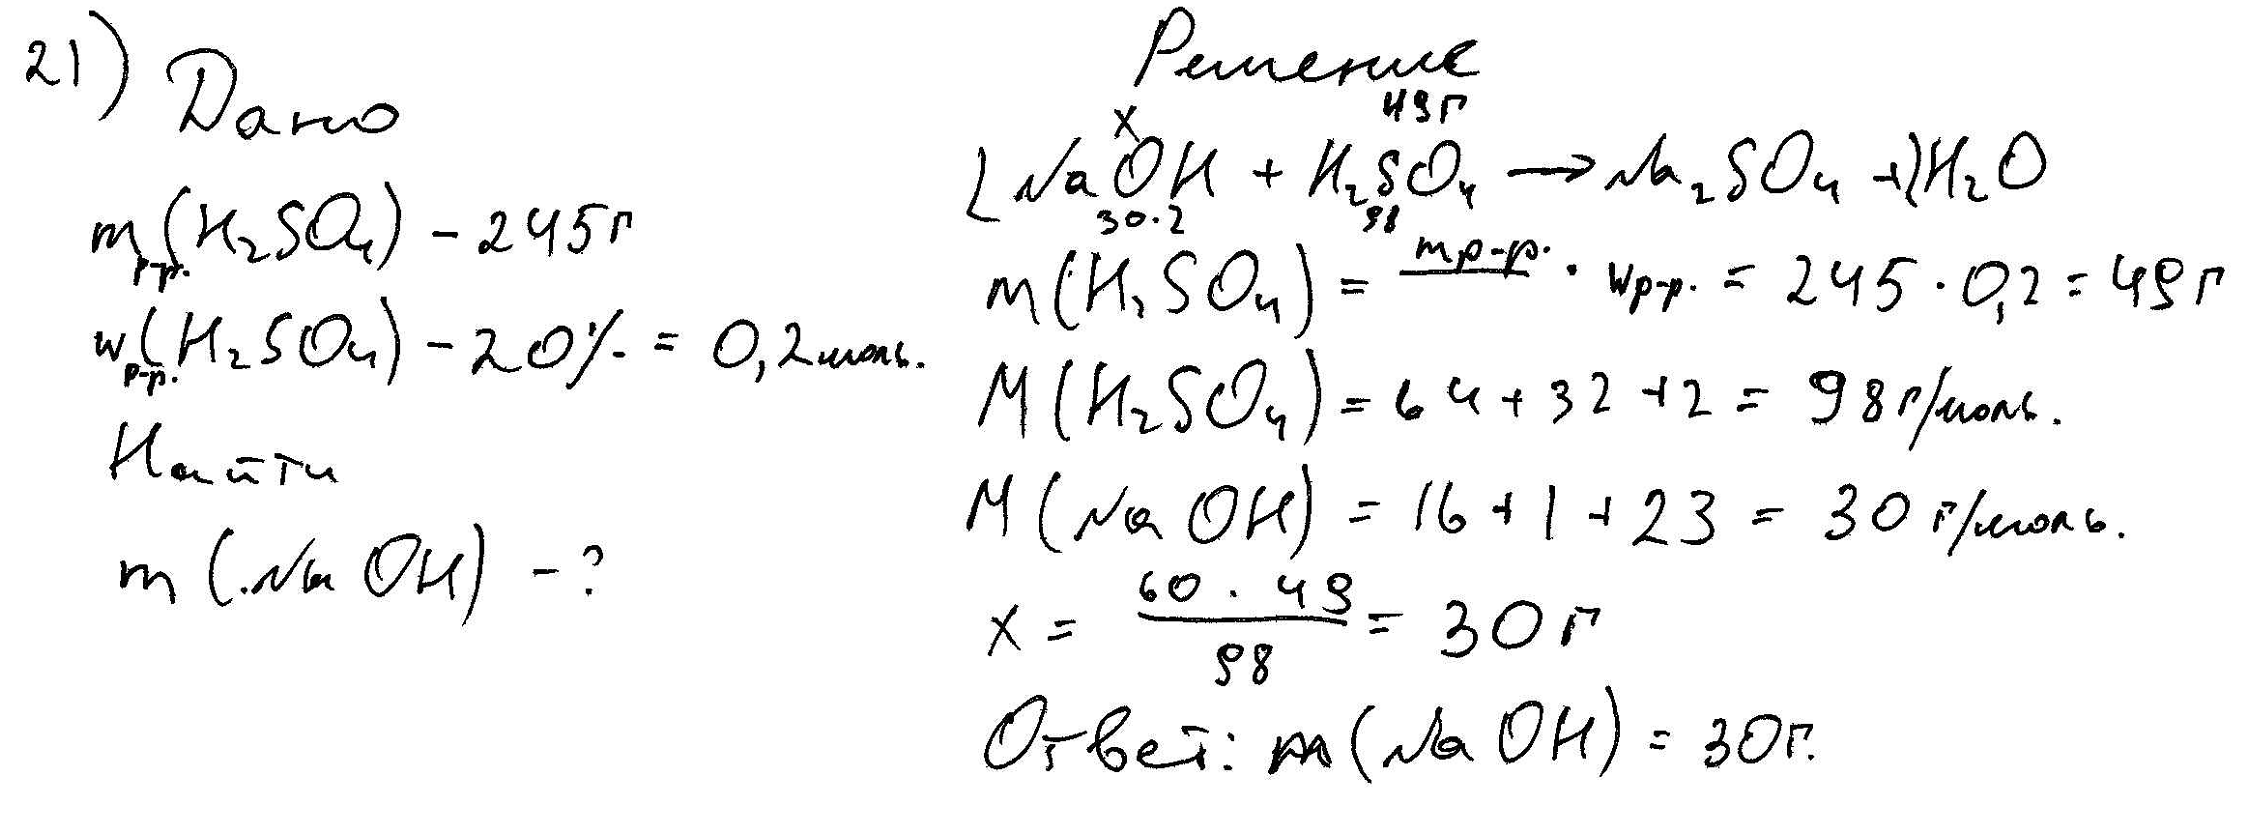 21) Дано
m р-р.(H₂SO₄) – 245 г
w р-р.(H₂SO₄) – 20% = 0,2 моль.
Найти
m (NaOH) – ?
Решение
x 49 г
2NaOH + H₂SO₄ → Na₂SO₄ + 2H₂O
30·2 98
m(H₂SO₄) = mр-р. · wр-р. = 245 · 0,2 = 49 г
M(H₂SO₄) = 64 + 32 + 2 = 98 г/моль.
M(NaOH) = 16 + 1 + 23 = 30 г/моль.
x = 60 · 49 / 98 = 30 г
Ответ: m(NaOH) = 30 г.